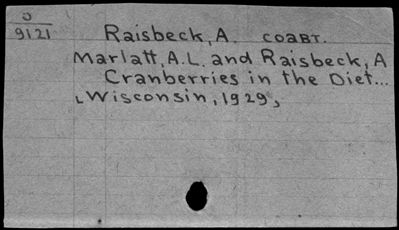 O
9121
Raisbeck, A. соавт.
Marlatt, A.L. and Raisbeck, A
Cranberries in the Diet...
[Wisconsin, 1929,